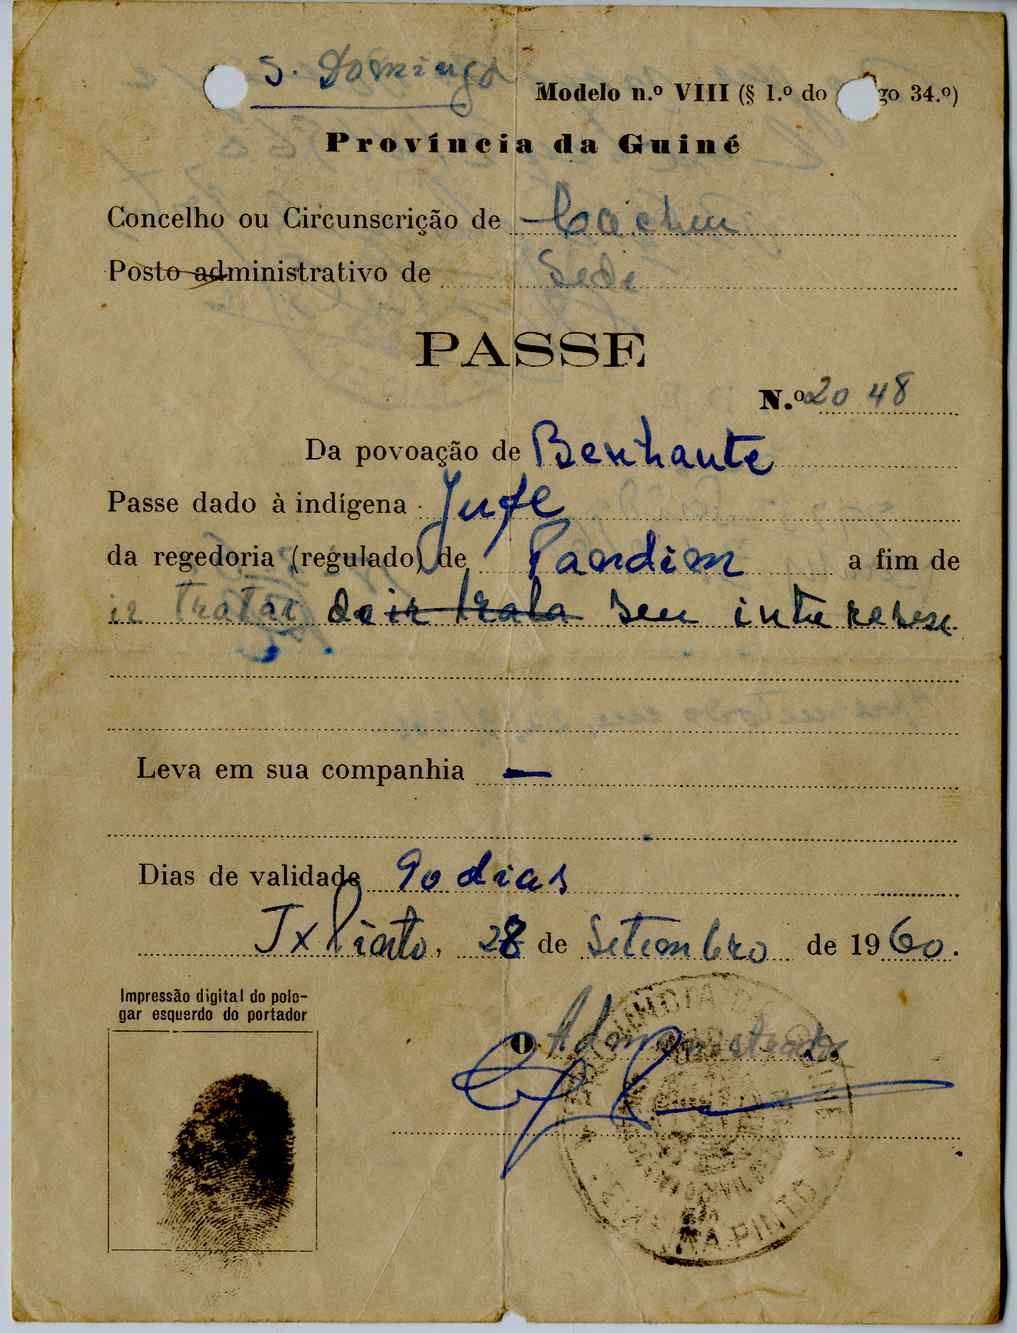 S. Domingo
Modelo n.º VIII (§ 1.º do go 34.º)
Província da Guiné
Concelho ou Circunscrição de Cacheu
Posto administrativo de Sede
PASSE
N.º 2048
Da povoação de Benhante
Passe dado à indígena Jufe
da regedoria (regulado) de Pandim a fim de
ir tratar de ir trata seu interesse
Leva em sua companhia —
Dias de validade 90 dias
Tx Pinto, 28 de Setembro de 1960.
Impressão digital do pole-
gar esquerdo do portador
O Administrador
PINTO